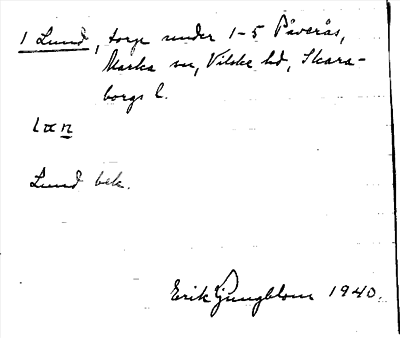 1 Lund, torp under 1-5 Påverås,
Marka sn, Vilske hd, Skara-
borgs l.
Lund bek.
Erik Ljungblom 1940.